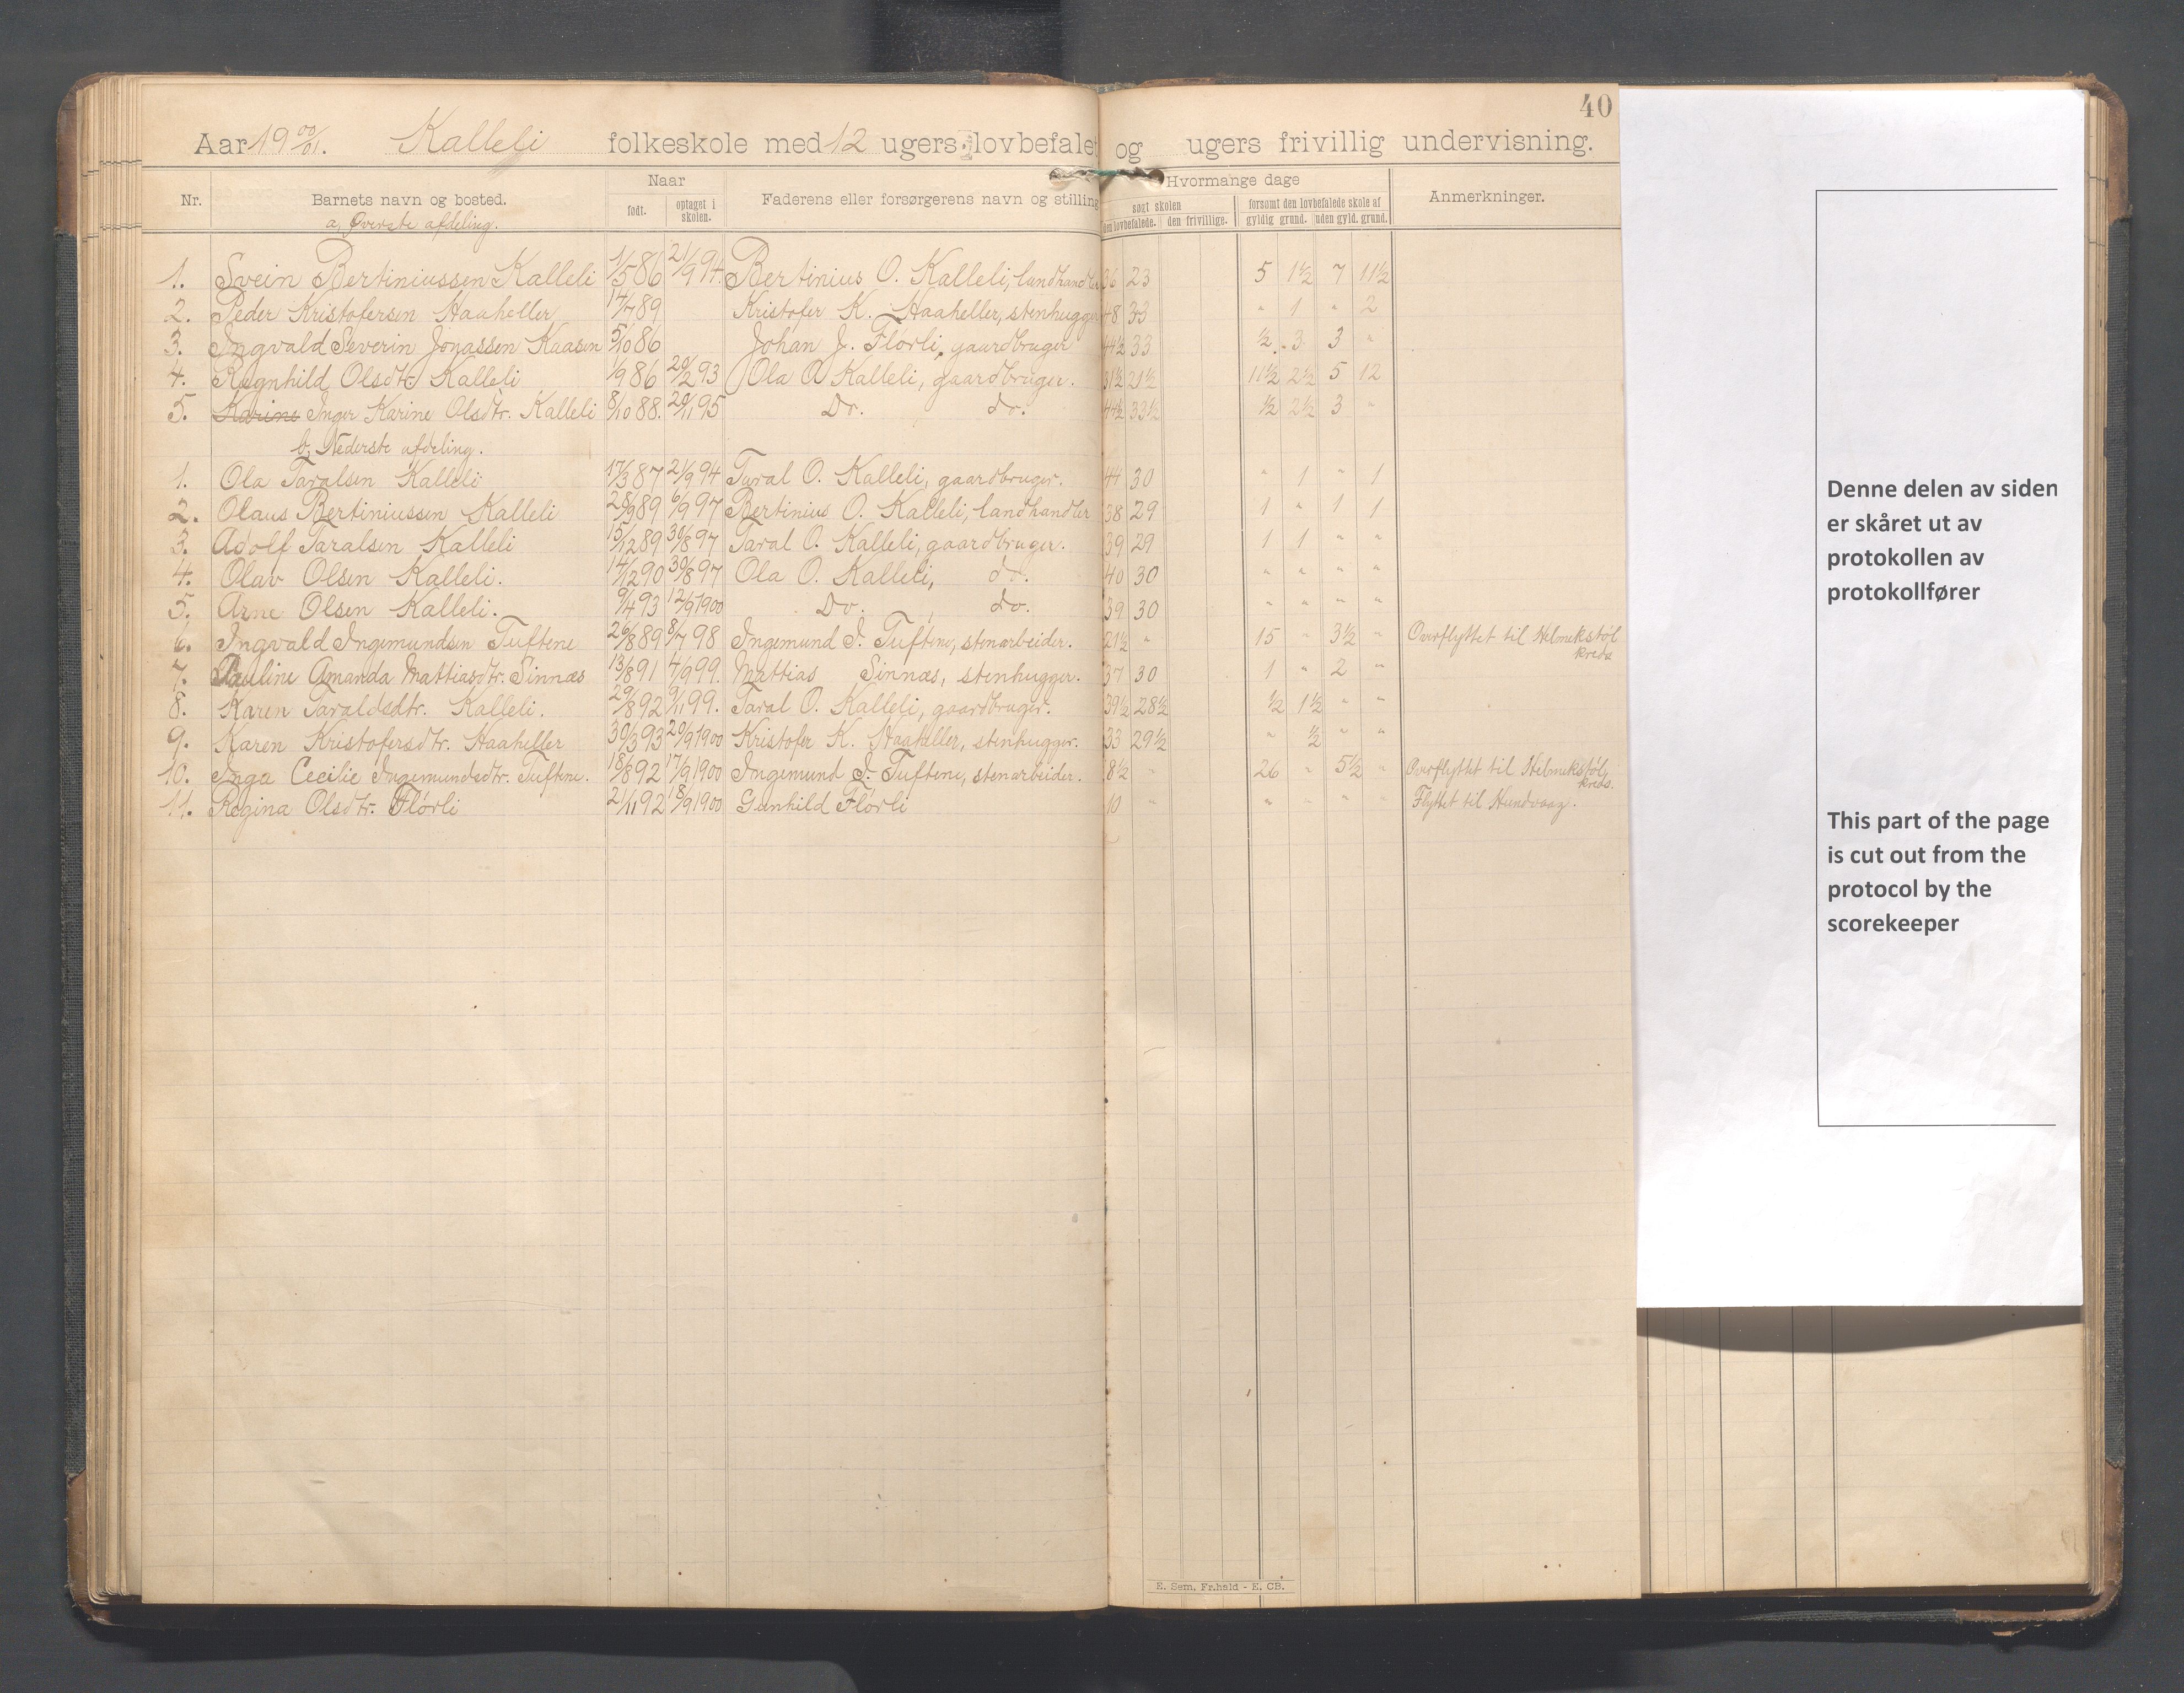 40
Aar 19 00/01. Kalleli folkeskole med 12 ugers lovbefalet og ugers frivillig undervisning.
Nr. Barnets navn og bosted. Naar født. optaget i skolen. Faderens eller forsørgerens navn og stilling Hvormange dage søgt skolen den lovbefalede. den frivillige. forsømt den lovbefalede skole af gyldig grund. uden gyld. grund. Anmerkninger.
a, Øverste afdeling.
1. Svein Bertiniussen Kalleli 1/5 86 21/9 94. Bertinius O. Kalleli, landhandler 36 23 5 1½ 7 11½
2. Peder Kristofersen Haaheller 14/7 89 Kristofer K. Haaheller, stenhugger 48 33 " 1 " 2
3. Ingvald Severin Jonassen Kaasen 5/10 86 Johan J. Flørli, gaardbruger 44½ 33 ½ 3 3 "
4. Ragnhild Olsdtr. Kalleli 1/9 86 20/2 93 Ola O. Kalleli, gaardbruger. 31½ 21½ 11½ 2½ 5 12
5. Karine Inger Karine Olsdtr. Kalleli 8/10 88. 20/11 95 Do. do. 44½ 33½ ½ 2½ 3 "
b, Nederste afdeling.
1. Ola Taralsen Kalleli 17/3 87 21/9 94 Taral O. Kalleli, gaardbruger. 44 30 " 1 " 1
2. Olaus Bertiniussen Kalleli 28/9 89 6/9 97 Bertinius O. Kalleli, landhandler 38 29 1 " 1 1
3. Adolf Taralsen Kalleli 15/12 89 30/8 97 Taral O. Kalleli, gaardbruger. 39 29 1 1 " "
4. Olav Olsen Kalleli. 14/12 90 30/8 97 Ola O. Kalleli, do. 40 30 " " " "
5. Arne Olsen Kalleli. 9/4 93 12/9 1900 Do. do. 39 30 " " " "
6. Ingvald Ingemundsen Tuftene 26/8 89 8/7 98 Ingemund I. Tuftene, stenarbeider. 21½ " 15 " 3½ " Overflyttet til Helmikstøl
kreds
7. Pauline Amanda Mattiasdtr. Sinnæs 13/8 91 4/9 99. Mattias Sinnæs, stenhugger. 37 30 1 " 2 "
8. Karen Taraldsdtr. Kalleli. 29/8 92 9/11 99. Taral O. Kalleli, gaardbruger. 39½ 28½ ½ 1½ " "
9. Karen Kristofersdtr. Haaheller 30/3 93 20/9 1900 Kristofer K. Haaheller, stenhugger. 33 29½ " ½ " "
10. Inga Cecilie Ingemundsdtr. Tuftene. 18/8 92 17/9 1900 Ingemund I. Tuftene, stenarbeider. 8½ " 26 " 5½ " Overflyttet til Helmikstøl
kreds.
11. Regina Olsdtr. Flørli 21/11 92 18/9 1900 Gunhild Flørli 10 " " " " " Flyttet til Hundvaag.
E. Sem, Fr.hald - E. CB.
Denne delen av siden
er skåret ut av
protokollen av
protokollfører
This part of the page
is cut out from the
protocol by the
scorekeeper